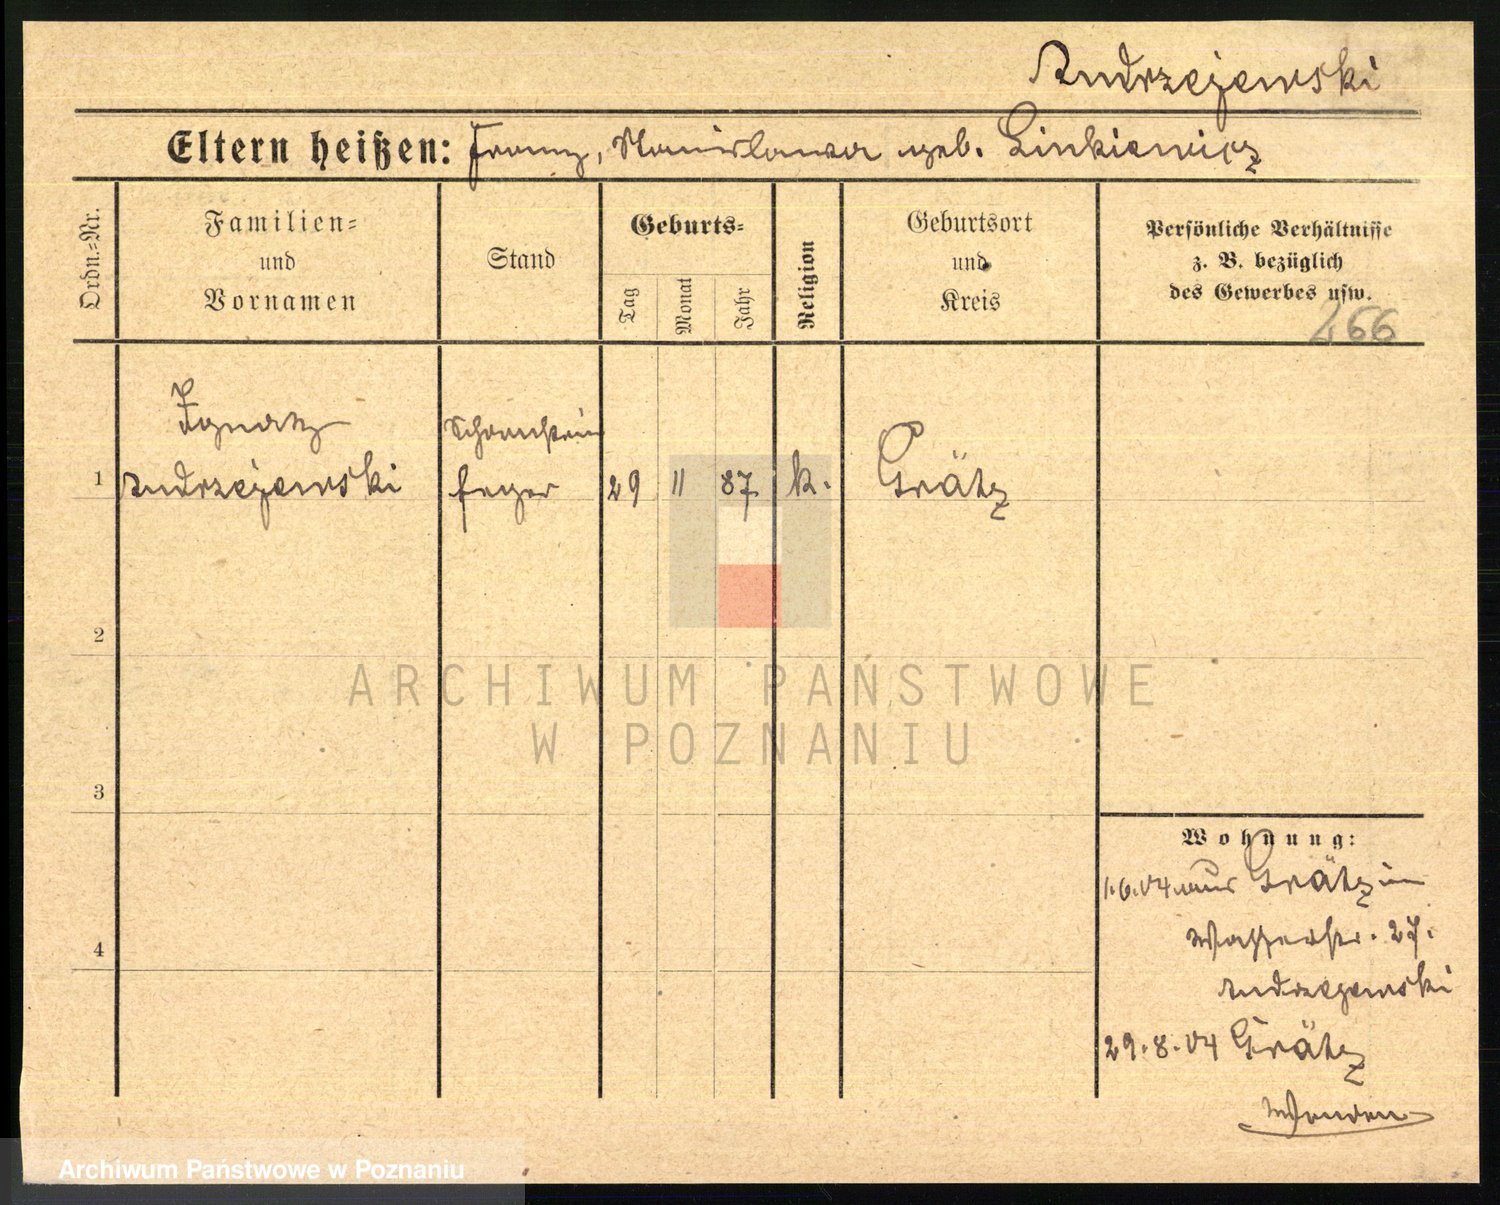 Andrzejewski
Eltern heißen: Franz, Stanislawa geb. Linkiewicz
Ordn.-Nr.
Familien-
und
Vornamen
Stand
Geburts-
Tag
Monat
Jahr
Religion
Geburtsort
und
Kreis
Persönliche Verhältnisse
z. B. bezüglich
des Gewerbes usw.
466
Ignatz
Schornstein
1 Andrzejewski feger 29 11 87 k. Grätz
2
3
4
Wohnung:
1.6.04 aus Grätz in
Wasserstr. 27.
Andrzejewski
29.8.04 Grätz
Wenden
ARCHIWUM PAŃSTWOWE
W POZNANIU
Archiwum Państwowe w Poznaniu